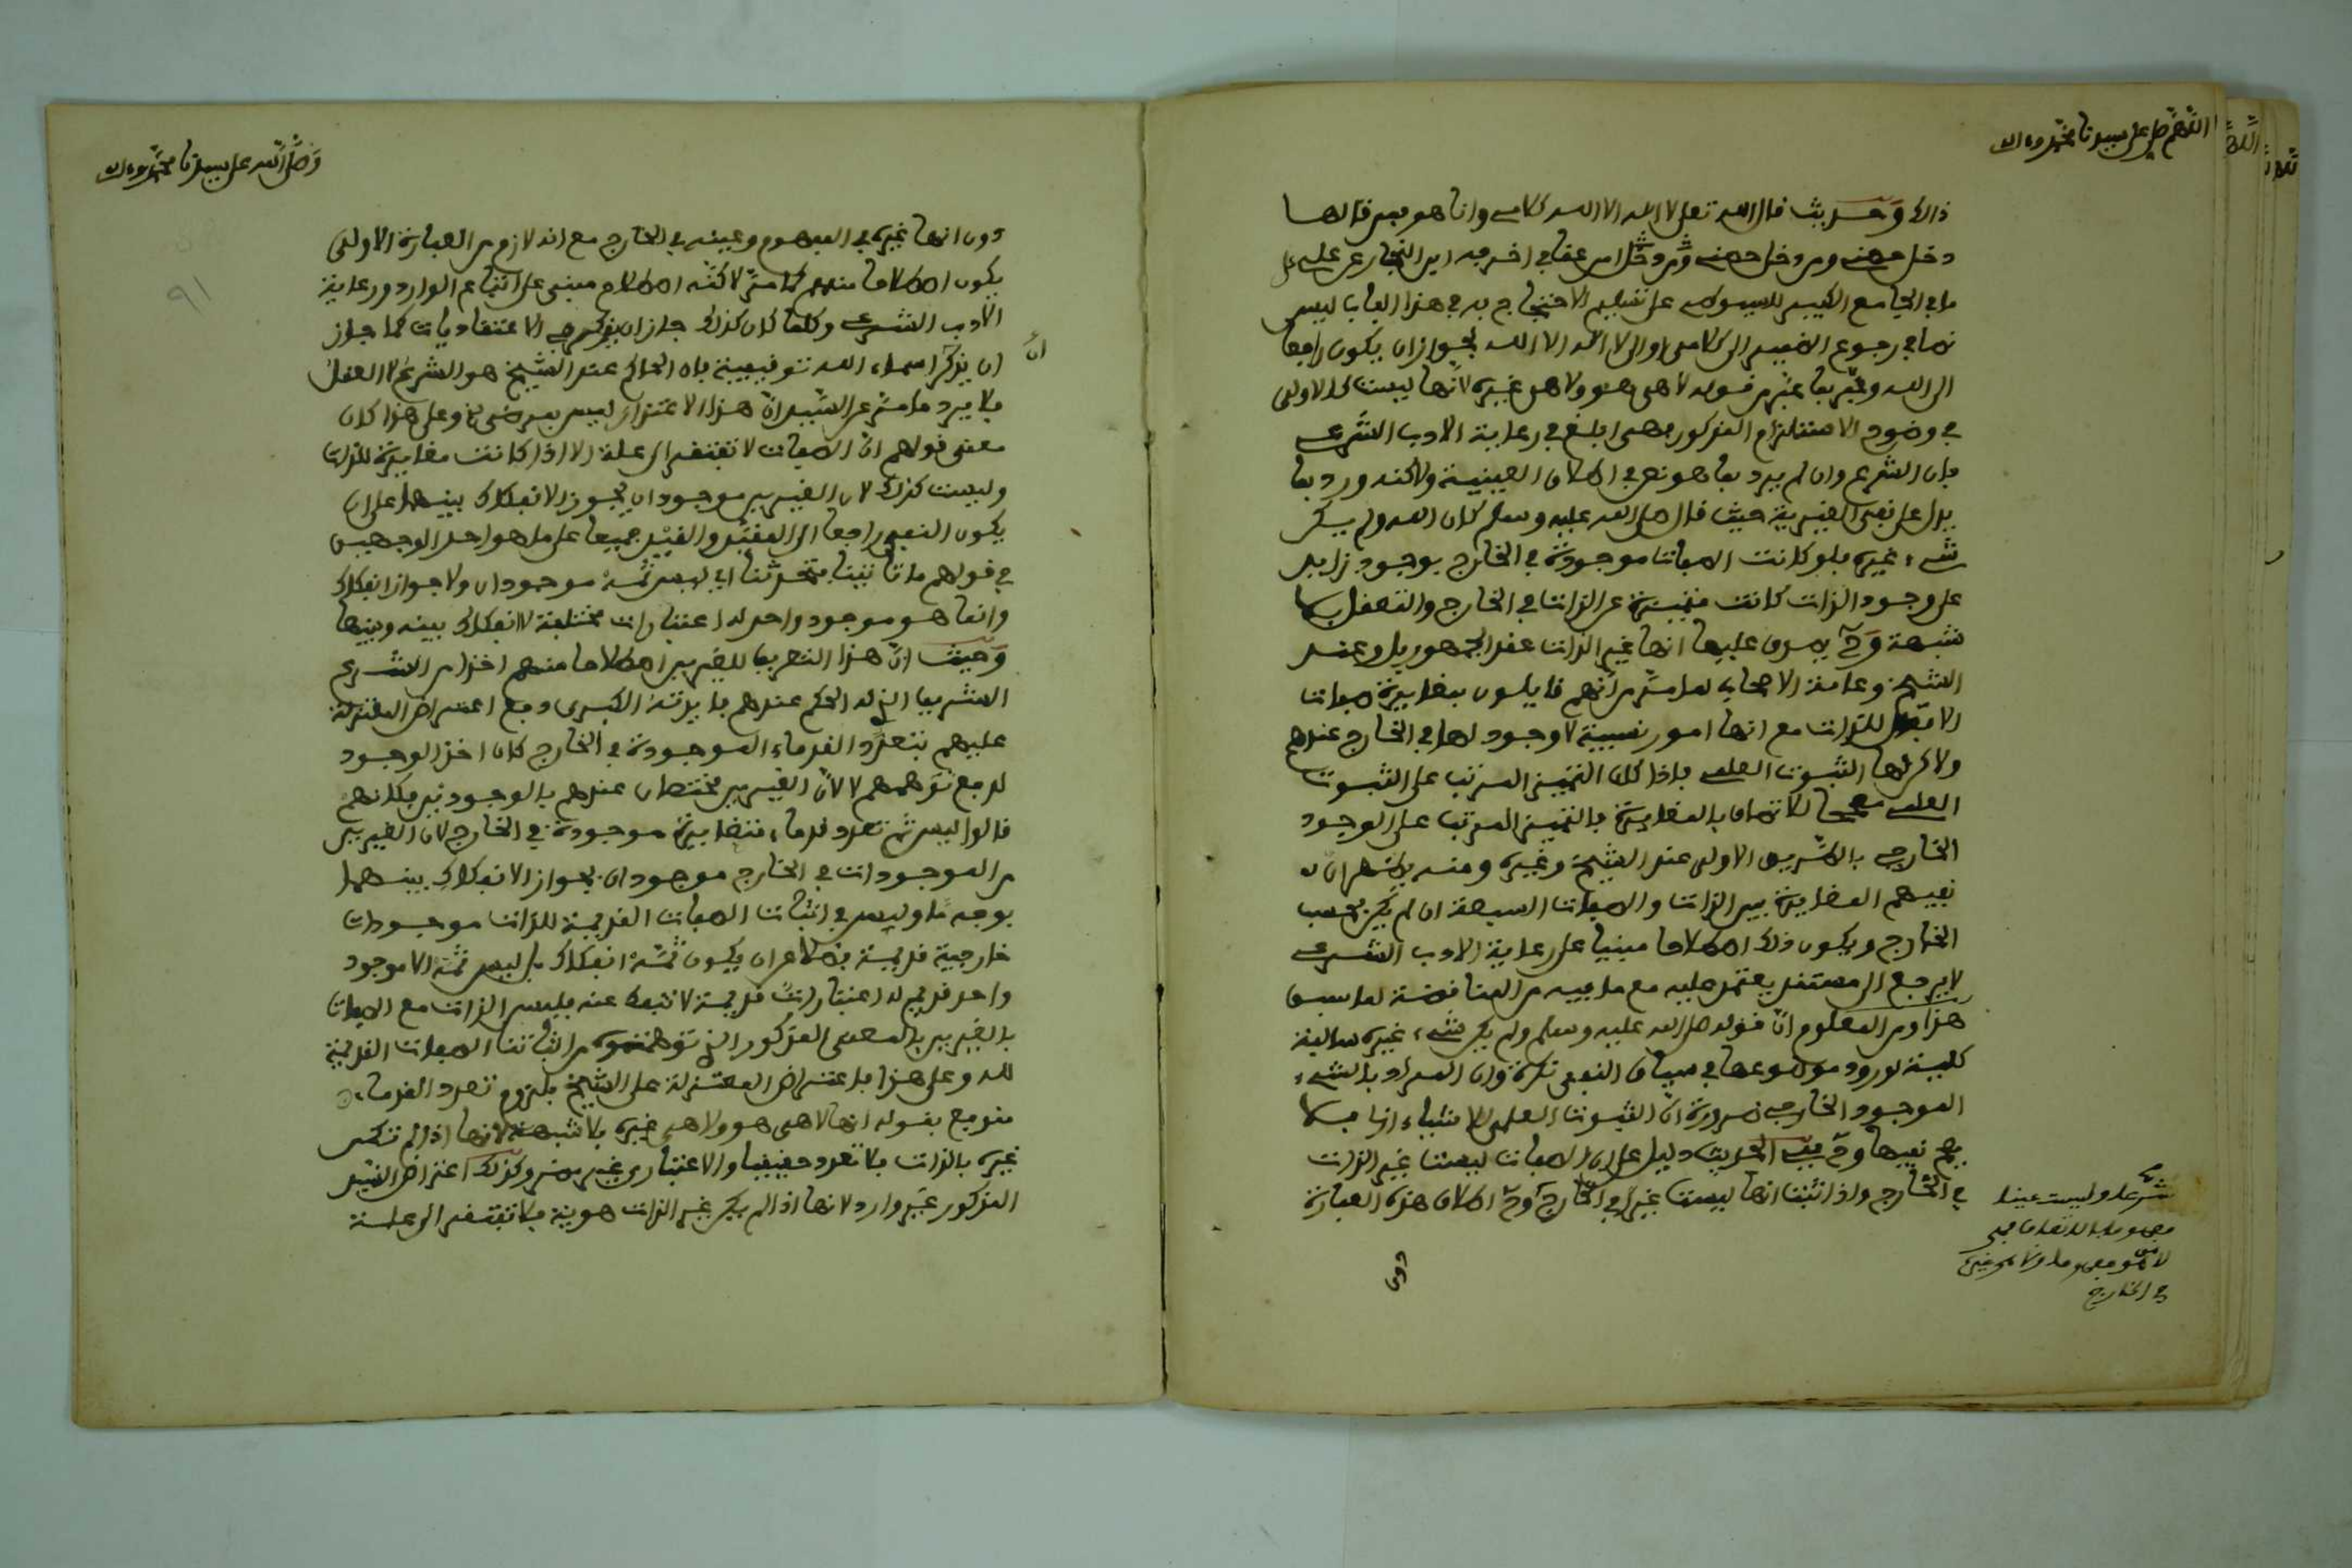 اللهم صل على سيدنا محمد وءاله
ذالك وحديث قال الله تعلى لا اله الا الله كلامي وانا هو فمن قالها
دخل حصني ومن دخل حصني ومن دخل امن عقابي اخرجه ابن النجار عن علي
ما في الجامع الكبير للسيوطي على تسليم الاحتجاج به في هذا الباب ليس
نصا في رجوع الضمير الى كلامي او الى لا اله الا الله لجواز ان يكون راجعا
الى الله وعبر بما عبر من قوله لا هي هو ولا هي غيره لانها ليست كالاولى
في وضوح الاستلزام المذكور وهي ابلغ في رعاية الادب الشرعي
فان الشرع وان لم يرد بما هو نص في اطلاق العينية ولاكنه ورد بما
يدل على نفي الغيرية حيث قال صلى الله عليه وسلم كان الله ولم يكن
شيء غيره فلو كانت الصفات موجودة في الخارج بوجود زايد
على وجود الذات كانت متميزة عن الذات في الخارج والتعقل بلا
شبهة وح يصدق عليها انها غير الذات عند الجمهور بل وعند
الشيخ وعامة الاصحاب لما مر من انهم قايلون بمغايرة صفات
الافعال للذات مع انها امور نسبية لا وجود لها في الخارج عندهم
ولاكن لها الثبوت العلمي فاذا كان التميز المرتب على الثبوت
العلمي مصححا للاتصاف بالمغايرة فالتميز المرتب على الوجود
الخارجي بالطريق الاولى عند الشيخ وغيره ومنه يظهر ان
نفيهم المغايرة بين الذات والصفات السبعة ان لم يكن بحسب
الخارج ويكون ذلك اطلاقا مبنيا على رعاية الادب الشرعي
لا يرجع الى مستند يعتمد عليه مع ما فيه من المناقضة لما سبق
هذا ومن المعلوم ان قوله صلى الله عليه وسلم ولم يكن شيء غيره سالبة
كلية لورود موضوعها في سياق النفي نكرة وان المراد بالشيء
الموجود الخارجي ضرورة ان الثبوت العلمي للاشياء ازلا فلا
يصح نفيها وح ففي الحديث دليل على ان الصفات ليست غير الذات
في الخارج واذا ثبت انها ليست غيرا في الخارج وح اطلاق هذه العبارة
شرعا وليست عينا
مفهوما بالاتفاق فهي
لا هو مفهوما ولا هي غيره
في الخارج
دون
وصلى الله على سيدنا محمد وءاله
٩١
دون انها غيره في المفهوم وعينه في الخارج مع انه لازم من العبارة الاولى
يكون اصطلاحا منهم كما مر لاكنه اصطلاح مبني على اتباع الوارد ورعاية
الادب الشرعي وكلما كان كذلك جاز ان يذكر في الاعتقاديات كما جاز
ان يذكر اسماء الله توقيفية بان الحاكم عند الشيخ هو الشرع لا العقل
ان
فلا يرد ما مر عن السيد ان هذا الاعتذار ليس بمرضي وعلى هذا كان
معنى قولهم ان الصفات لا تفتقر الى علة الا اذا كانت مغايرة للذات
وليست كذلك لان الغيرين موجودان يجوز الانفكاك بينهما على ان
يكون النفي راجعا الى المقيد والقيد جميعا على ما هو احد الوجهين
في قولهم ما تاتينا فتحدثنا اي ليس ثمه موجودان ولا جواز انفكاك
وانما هو موجود واحد له اعتبارات مختلفة لا انفكاك بينه وبينها
وحيث ان هذا التعريف للغيرين اصطلاحا منهم اخذا من الشرع
الشريف الذي له الحكم عندهم فايدته الكبرى دفع اعتراض المعتزلة
عليهم بتعدد القدماء الموجودة في الخارج كان اخذ الوجود
لدفع توهمهم لا لان الغيرين مختصان عندهم بالوجودين فكانهم
قالوا ليس ثم تعدد قدماء متغايرة موجودة في الخارج لان الغيرين
من الموجودات في الخارج موجودان يجوز الانفكاك بينهما
بوجه ما وليس في اثبات الصفات القديمة للذات موجودات
خارجية قديمة فضلا عن ان يكون ثمه انفكاك بل ليس ثمه الا موجود
واحد قديم له اعتبارات قديمة لا تنفك عنه فليس الذات مع الصفات
بالغيرين بالمعنى المذكور الذي توهمتموه من اثباتنا الصفات القديمة
لله وعلى هذا فاعتراض المعتزلة على الشيخ بلزوم تعدد القدماء
مندفع بقوله انها لا هي هو ولا هي غيره بلا شبهة لانها اذا لم تكن
غيره بالذات فلا تعدد حقيقيا والاعتباري غير مضر وكذلك اعتراض السيد
المذكور غير وارد لانها اذا لم يكن غير الذات هوية فلا تفتقر الى علة